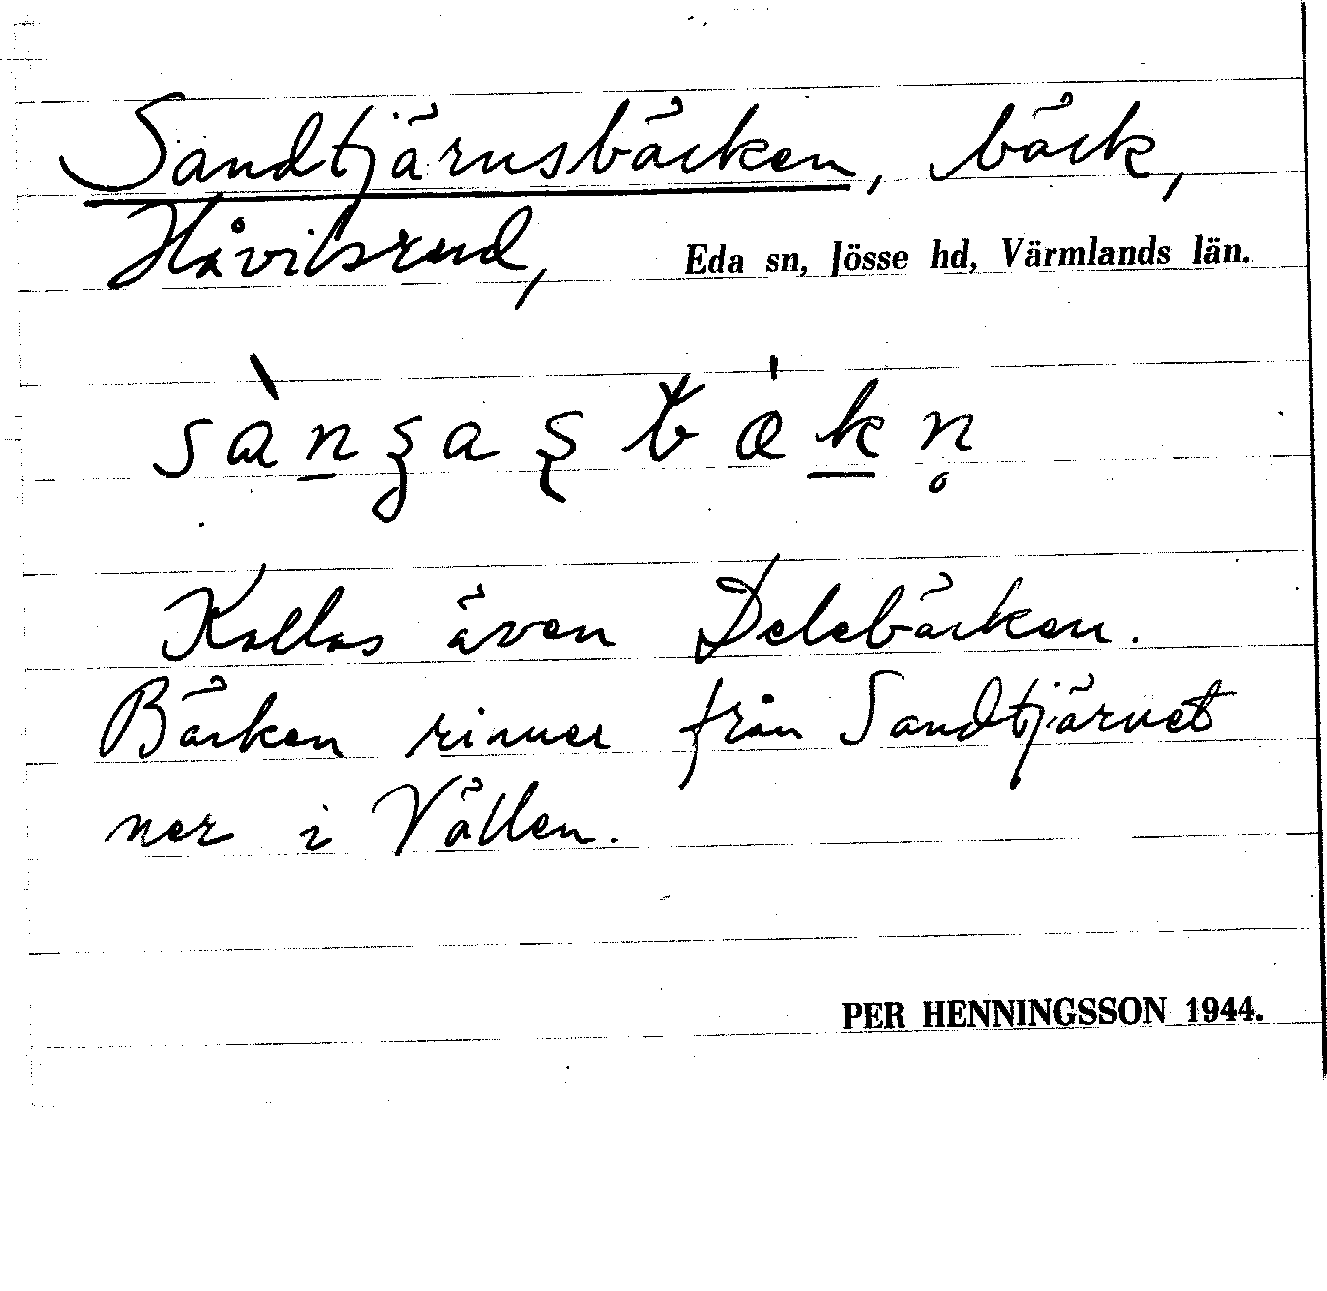 Sandtjärnsbäcken, bäck,
Håvilsrud, Eda sn, Jösse hd, Värmlands län.
Kallas även Delebäcken.
Bäcken rinner från Sandtjärnet
ner i Vällen.
PER HENNINGSSON 1944.